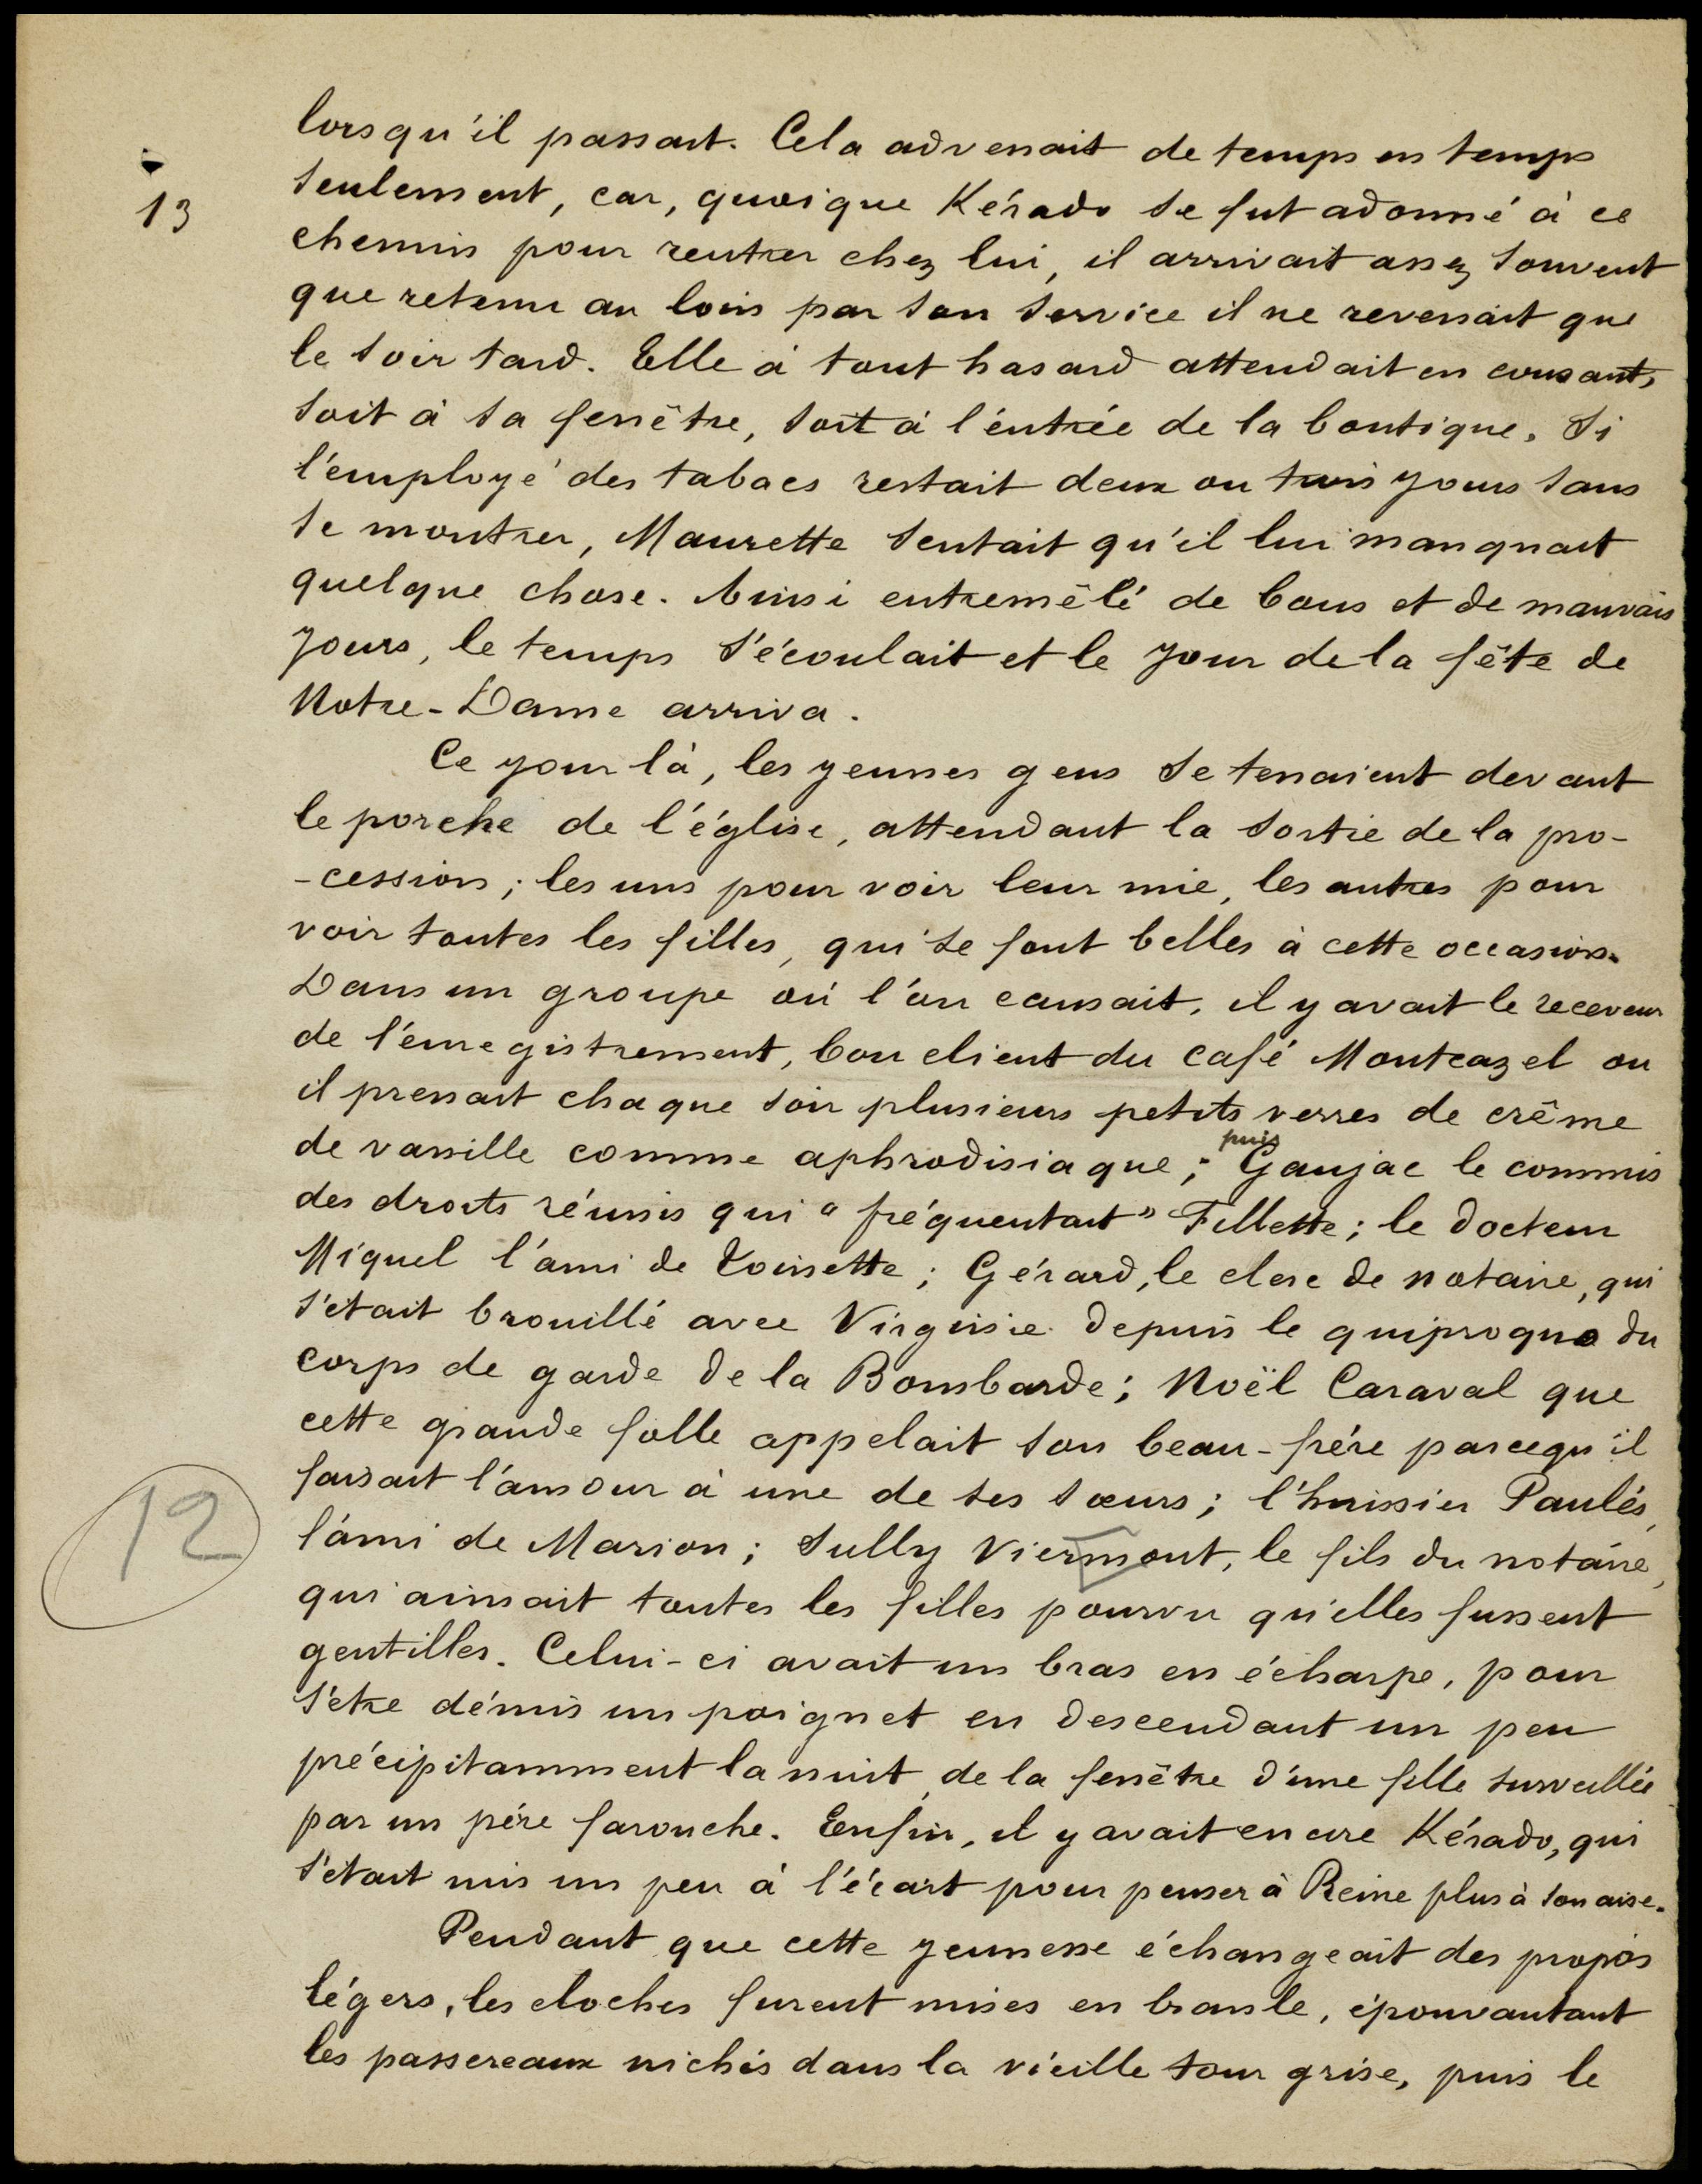 lorsqu'il passait. Cela advenait de temps en temps
13
seulement, car, quoique Kérado se fut adonné à ce
chemin pour rentrer chez lui, il arrivait assez souvent
que retenu au loin par son service il ne revenait que
le soir tard. Elle à tout hasard attendait en cousant,
soit à sa fenêtre, soit à l'éntrée de la boutique. Si
l'employé des tabacs restait deux ou trois jours sans
se montrer, Maurette sentait qu'il lui manquait
quelque chose. Ainsi entremêlé de bons et de mauvais
jours, le temps s'écoulait et le jour de la fête de
Notre-Dame arriva.
Ce jour là, les jeunes gens se tenaient devant
le porche de l'église, attendant la sortie de la pro-
-cession; les uns pour voir leur mie, les autres pour
voir toutes les filles, qui se font belles à cette occasion.
Dans un groupe où l'on causait, il y avait le receveur
de l'énregistrement, bon client du café Montcazel ou
il prenait chaque soir plusieurs petits verres de crême
de vanille comme aphrodisiaque; puis Gaujac le commis
des droits réunis qui "fréquentait" Fillette; le docteur
Miquel l'ami de Toinette; Gérard, le clerc de notaire, qui
s'était brouillé avec Virginie depuis le quiproquo du
corps de garde de la Bombarde; Noël Caraval que
cette grande folle appelait son beau-frére parcequ'il
faisait l'amour à une de ses sœurs; l'huissier Paulés,
12
l'ami de Marion; Sully Viermont, le fils du notaire,
qui aimait toutes les filles pourvu qu'elles fussent
gentilles. Celui-ci avait un bras en écharpe, pour
s'être démis un poignet en descendant un peu
précipitamment la nuit, de la fenêtre d'une fille surveillée
par un pére farouche. Enfin, il y avait encore Kérado, qui
s'était mis un peu à l'écart pour penser à Reine plus à son aise.
Pendant que cette jeunesse échangeait des propos
légers, les cloches furent mises en branle, épouvantant
les passereaux nichés dans la vieille tour grise, puis le